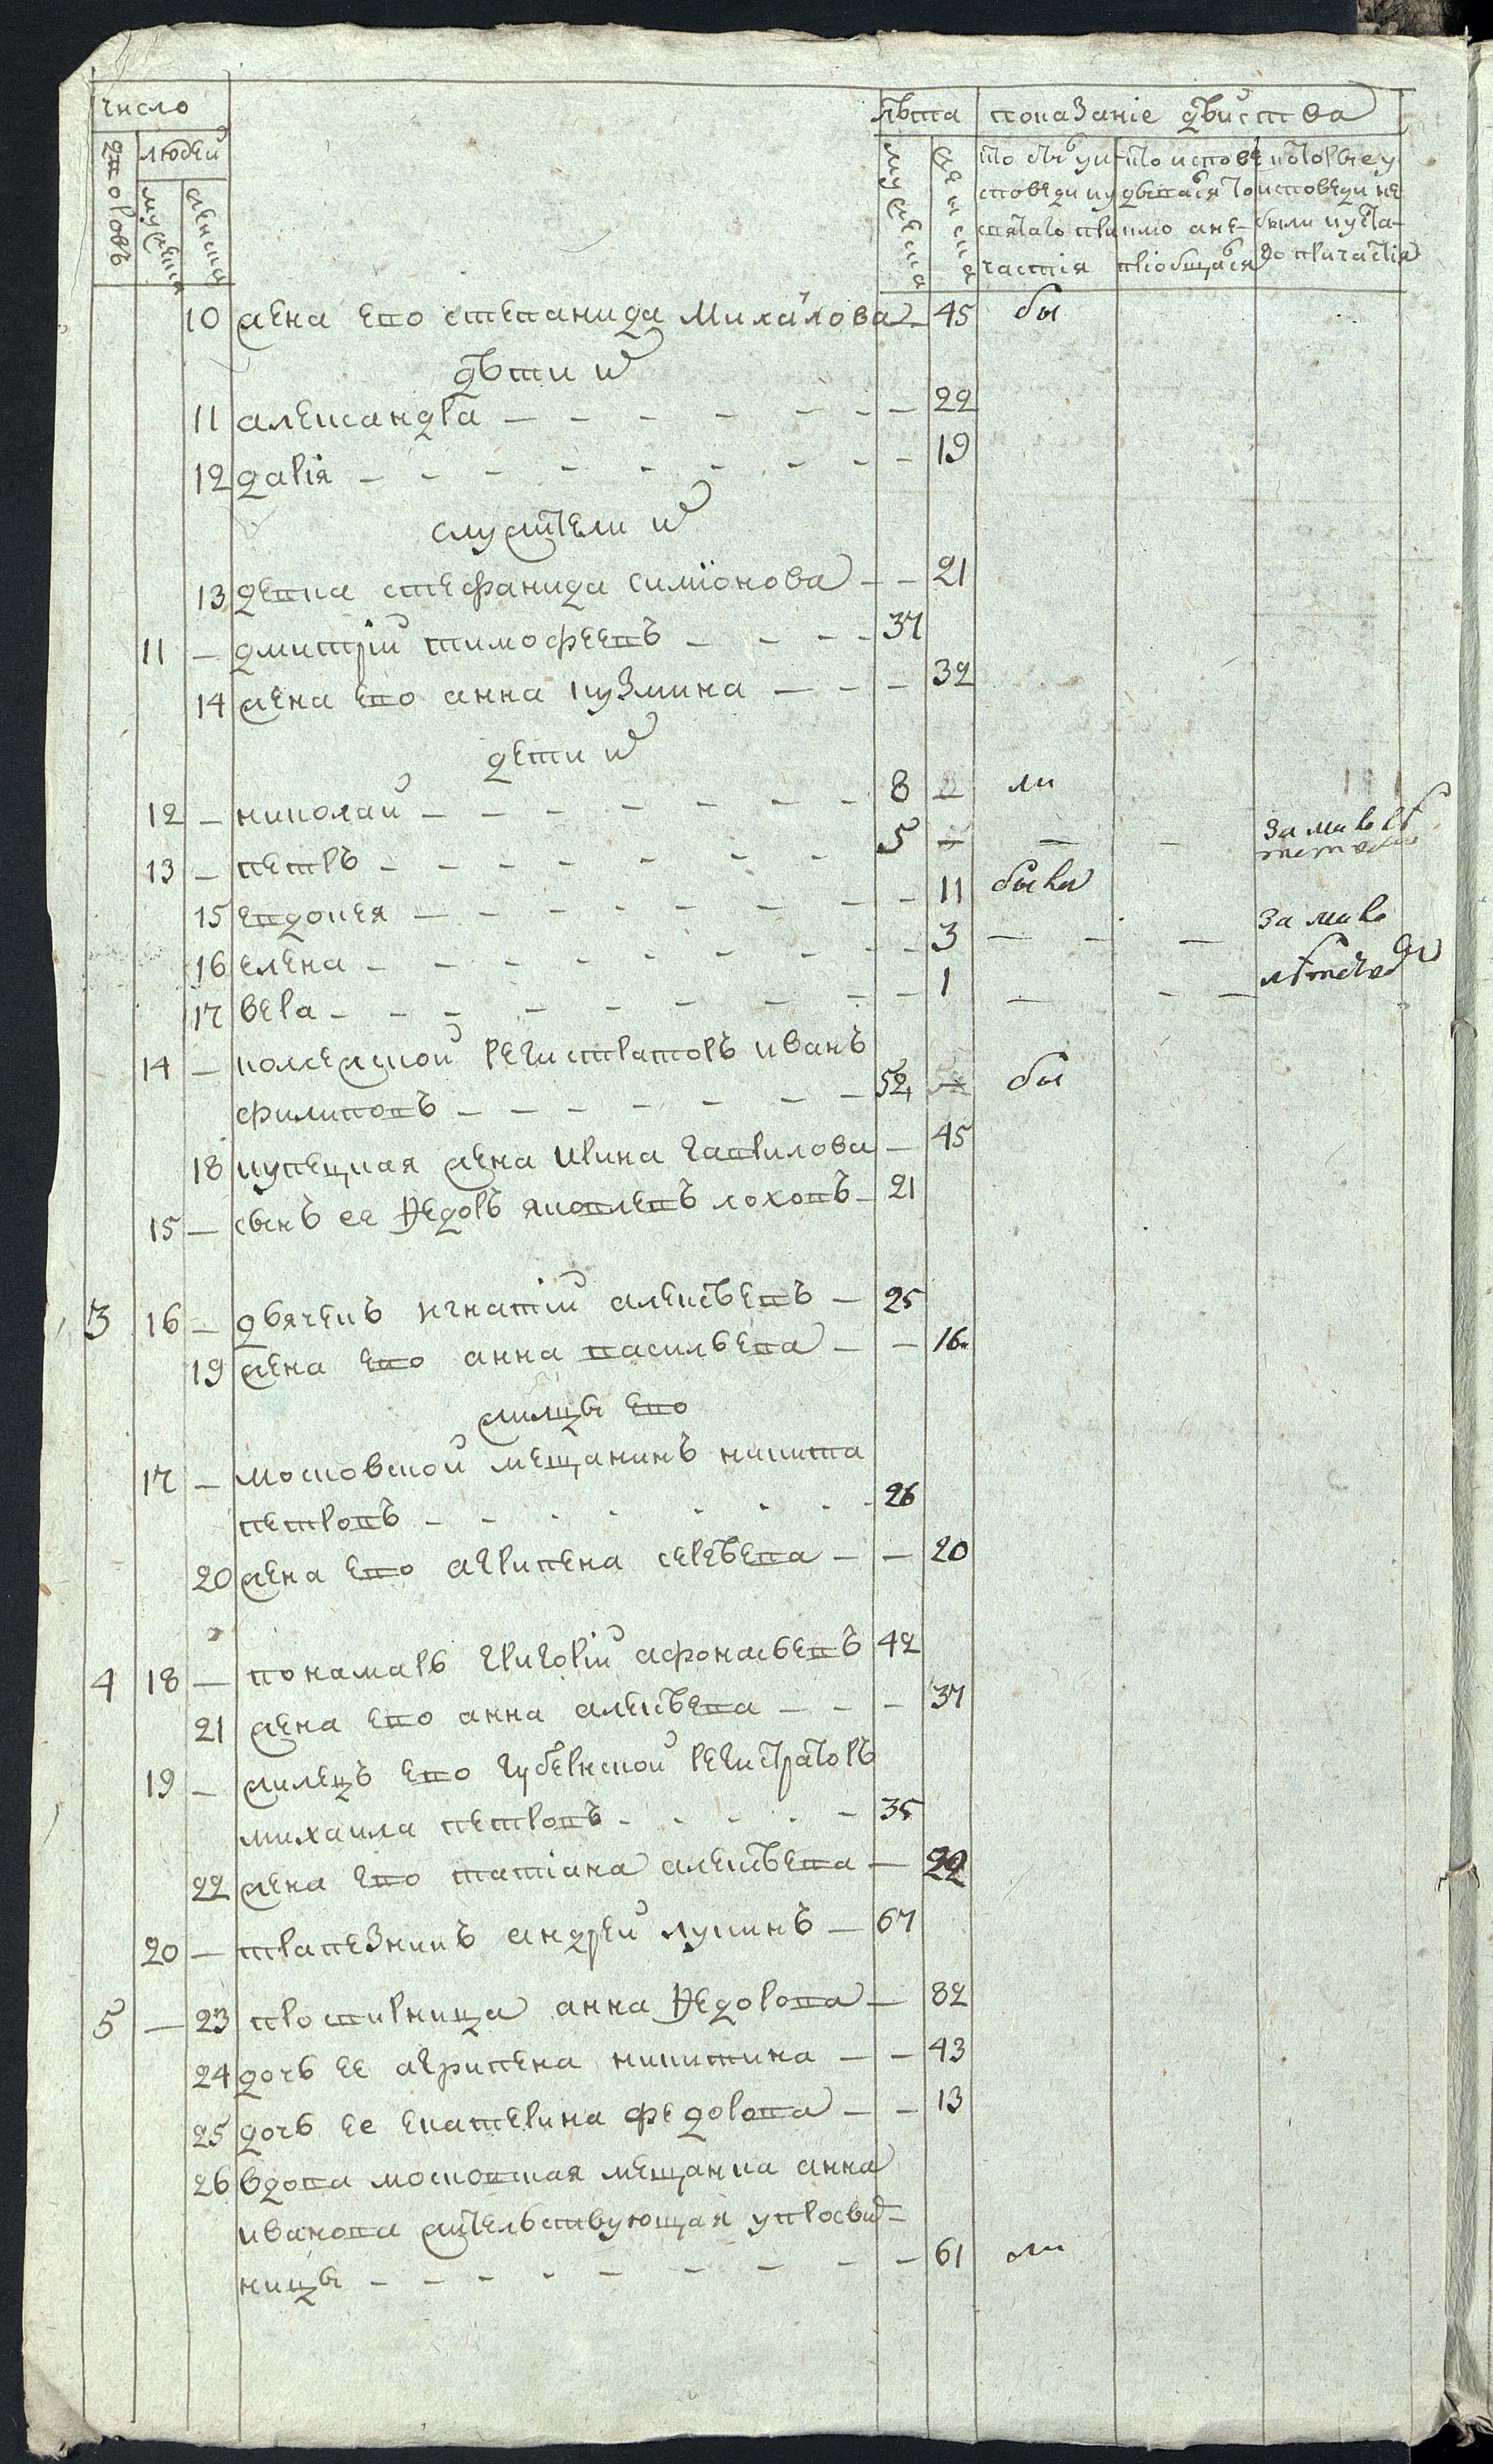 число
лѣта показаніе дѣиства
дворовъ
людеи
мужеска
женска
мужеска
женска
кто былъ у исповеди и у святаго причастия
кто исповедывался токмо а не приобщался
кто же у исповеди не были и у святаго причастія
10 жена его степанида Михаилова 45 бы
дѣти их
11 александра 22
12 дарія 19
служители их
13 девка стефанида симионова 21
11 дмитріи тимофеевъ 37
14 жена его анна кузмина 32
дети их
12 николаи 8 ли
13 петръ 5 за малолѣтством
15 евдокея 11 были
16 елена 3 за мало
17 вера 1 лѣтством
14 колежскои регистраторъ иванъ
филиповъ 52 бы
18 купецкая жена ирина гаврилова 45
15 сынъ ее Ѳедоръ яковлевъ лоховъ 21
3 16 дьячекъ игнатіи алексѣевъ 25
19 жена его анна васильева 16
жилцы его
17 московскои мещанинъ никита
петровъ 26
20 жена его агрипена сергѣева 20
4 18 понамарь григоріи афонасьевъ 42
21 жена его анна алексѣева 37
19 жилецъ его губернскои регистраторъ
михаила петровъ 35
22 жена его татіана алексѣева 22
20 трапезникъ андреи лукинъ 67
5 23 просвирница анна Ѳедорова 82
24 дочь ее агрипена никитина 43
25 дочь ее екатерина федорова 13
26 вдова московская мещанка анна
иванова жителствующая у просвир-
ницы 61 ли